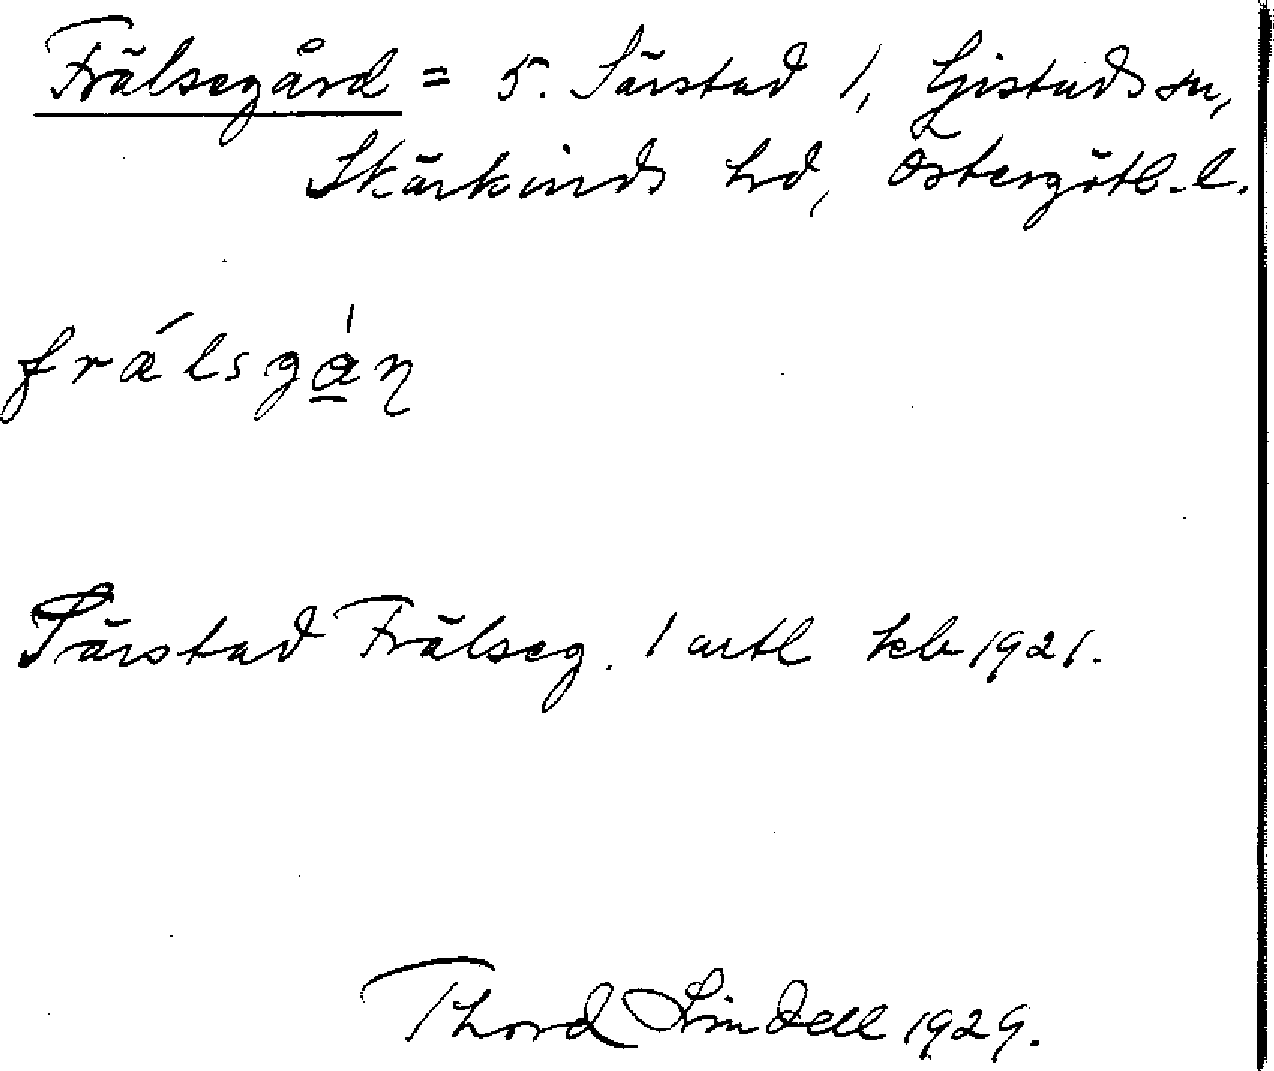 Frälsegård = 5. Särstad 1, Gistads sn,
Skärkinds hd, Östergötl. l.
frǽlsgán
Särstad Frälseg. 1 artl kb 1921.
Thord Lindell 1929.